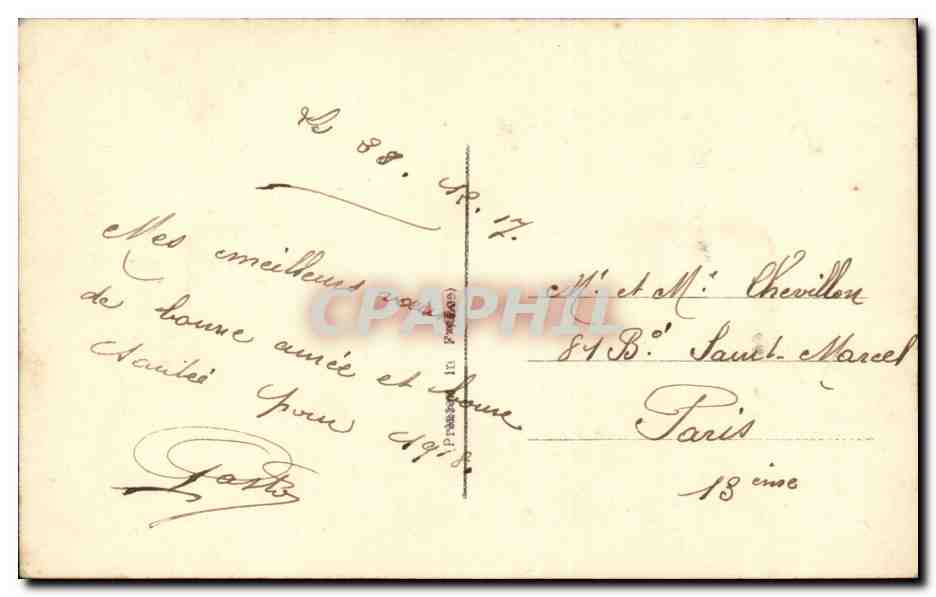 Le 28. 12. 17.
Mes meilleurs vœux
de bonne année et bonne
santée pour 1918.
Gaston
CPAPHIL
(Printed in France)
Mr. et Me. Chevillon
81 Bd. Saint-Marcel
Paris
13 ème